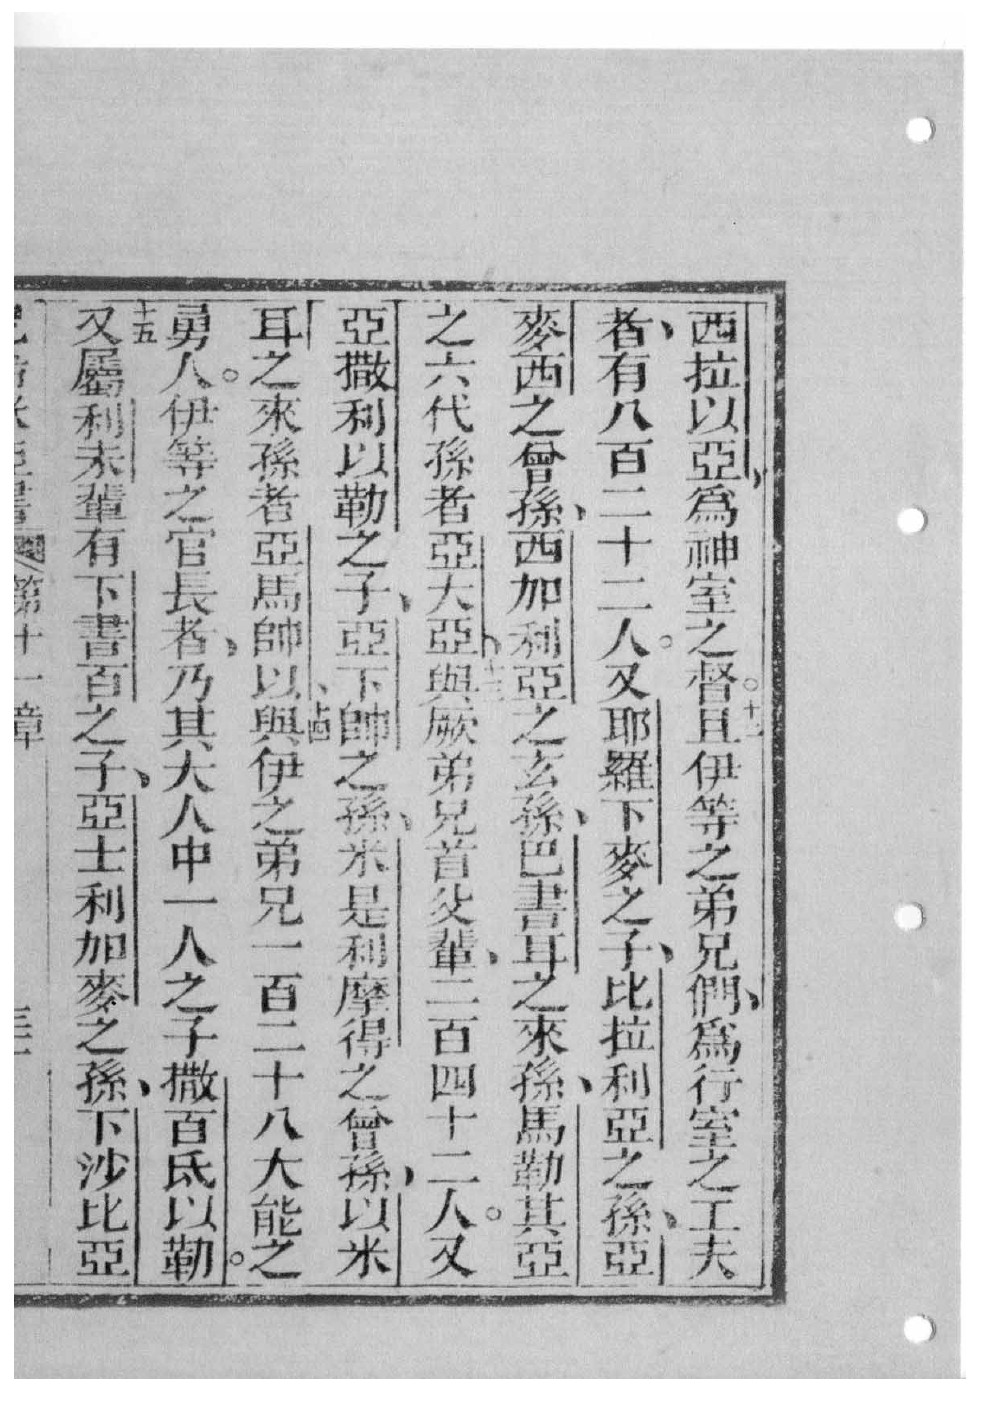 西拉以亞、爲神室之督。十二且伊等之弟兄們、爲行室之工夫
者、有八百二十二人。又耶羅下麥之子、比拉利亞之孫、亞
麥西之曾孫、西加利亞之玄孫、巴書耳之來孫、馬勒其亞
之六代孫者亞大亞、十三與厥弟兄首父輩、二百四十二人。又
亞撒利以勒之子、亞下帥之孫、米是利摩得之曾孫、以米
耳之來孫者亞馬帥以、十四與伊之弟兄一百二十八大能之
勇人。伊等之官長者、乃其大人中一人之子撒百氐以勒。
十五又屬利未輩有下書百之子、亞士利加麥之孫、下沙比亞
第十一章